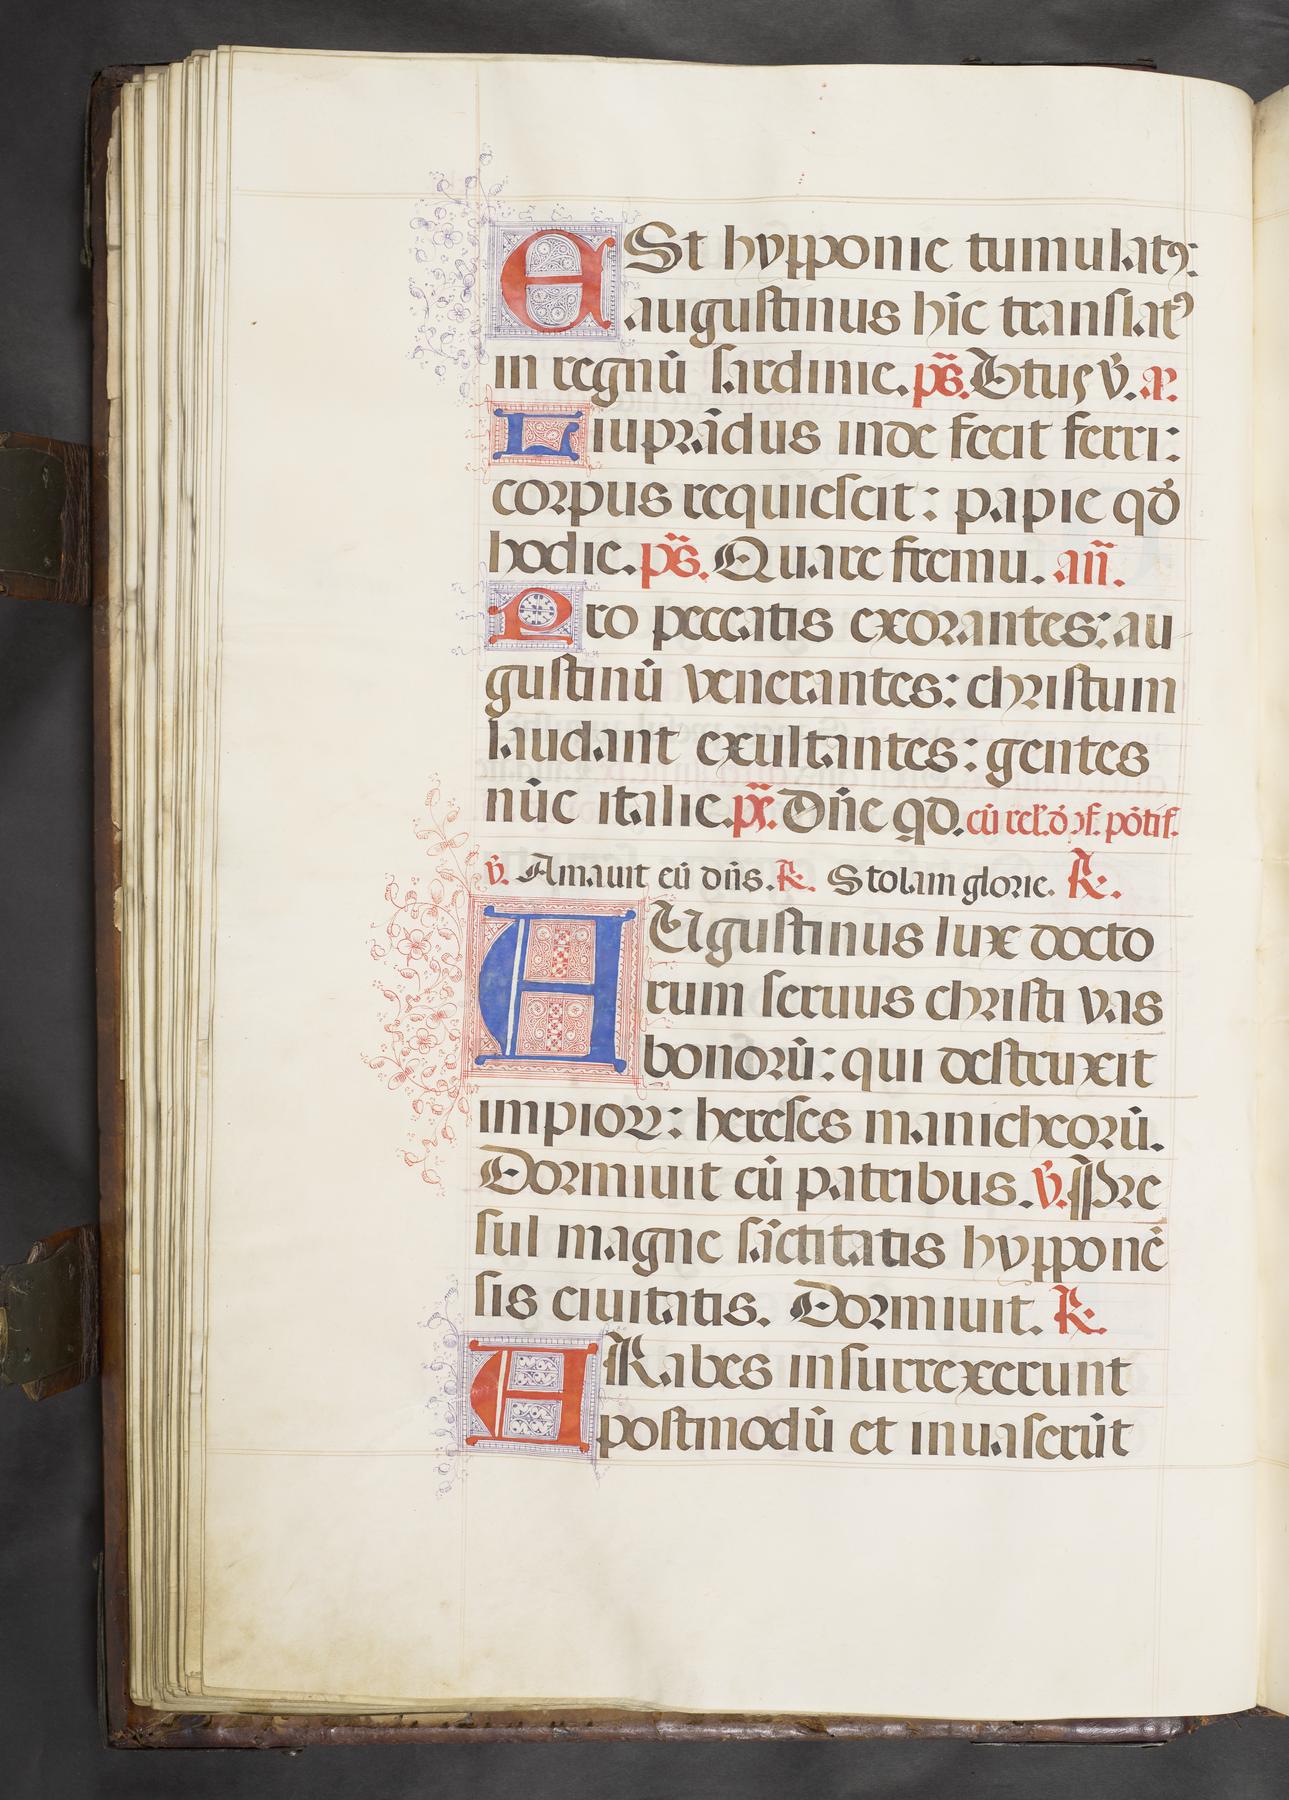 ESt hypponie tumulatꝰ:
augustinus hic translatꝰ
in regnū sardinie. p̄s. Btus v̄. a.
Liuprādus inde fecit ferri:
corpus requiescit: papie qđ
hodie. p̄s. Quare fremu. an̄.
Pro peccatis exorantes: au
gustinū venerantes: christum
laudant exultantes: gentes
nūc italie. p̄s. Dn̄e qd. cū rel̄. đ ꝯf. pōtif.
v̄. Amauit eū dn̄s. ℟. Stolam glorie. ℟.
AUgustinus lux docto
rum seruus christi vas
bonorū: qui destruxit
impioꝝ: hereses manicheorū.
Dormiuit cū patribus. v̄. Pre
sul magne sāctitatis hypponē
sis ciuitatis. Dormiuit. ℟.
ARabes insurrexerunt
postmodū et inuaserūt